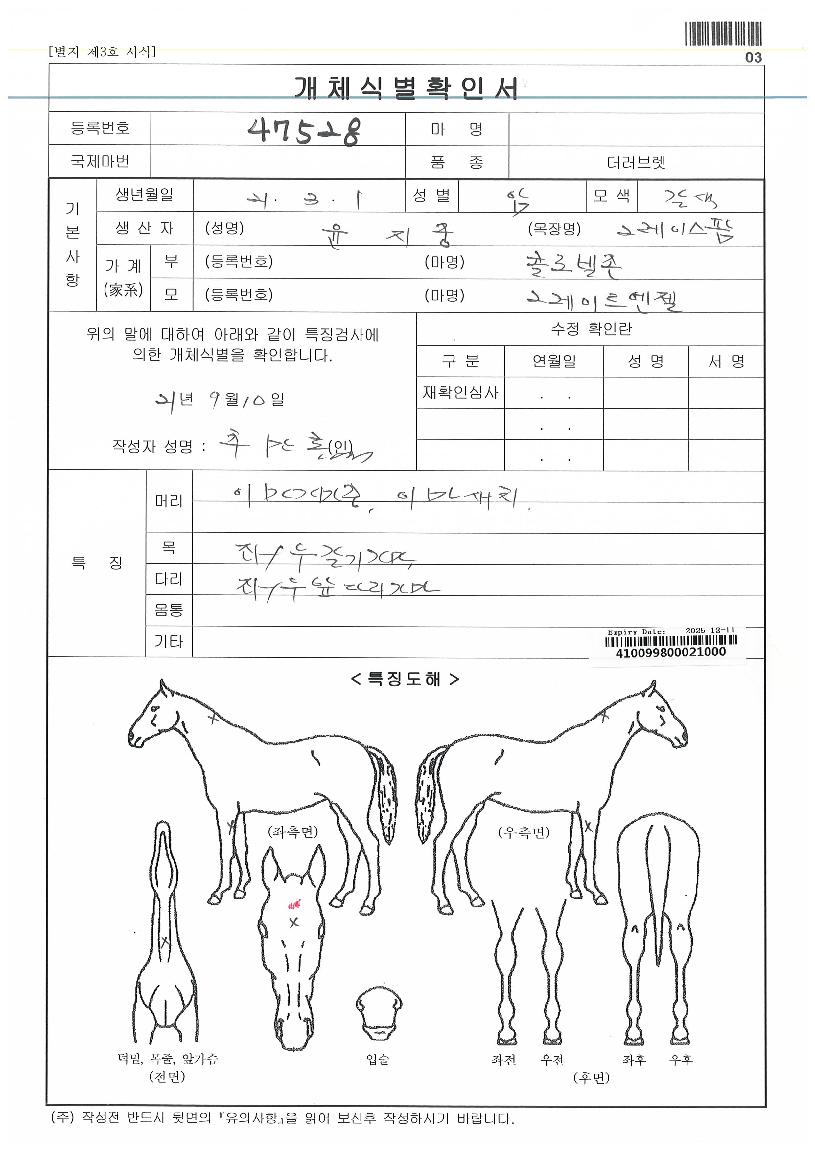 [별지 제3호 서식]
03
개체식별확인서
등록번호 47528 마 명
국제마번 품 종 더러브렛
기본사항
생년월일 21. 3. 1 성별 암 모색 갈색
생산자 (성명) 윤지중 (목장명) 그레이스팜
가계(家系) 부 (등록번호) (마명) 콜로넬존
모 (등록번호) (마명) 그레이트엔젤
위의 말에 대하여 아래와 같이 특징검사에
의한 개체식별을 확인합니다.
21년 9월 10일
작성자 성명 : (인)
수정 확인란
구 분 연월일 성 명 서 명
재확인심사 . .
. .
. .
특 징
머리
목
다리
몸통
기타
Expiry Date: 2025-12-11
410099800021000
< 특징도해 >
(좌측면) (우측면)
턱밑, 목줄, 앞가슴 입술 좌전 우전 좌후 우후
(전면) (후면)
(주) 작성전 반드시 뒷면의 『유의사항』을 읽어 보신후 작성하시기 바랍니다.